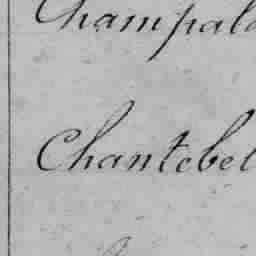 Champala
Chantebel